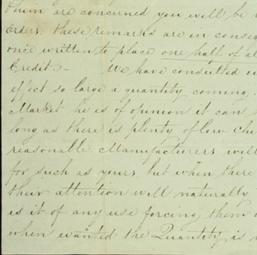 them are concerned you will be
order. these remarks are in conseq
once written to place one half of al
Credit :- We have consulted
effect so large a quantity, coming,
Market he is of opinion it can
long as there is plenty of low
reasonable Manufacturers will
for such as yours but when there
their attention will naturally
is it of any use forcing them
when wanted the Quantity is